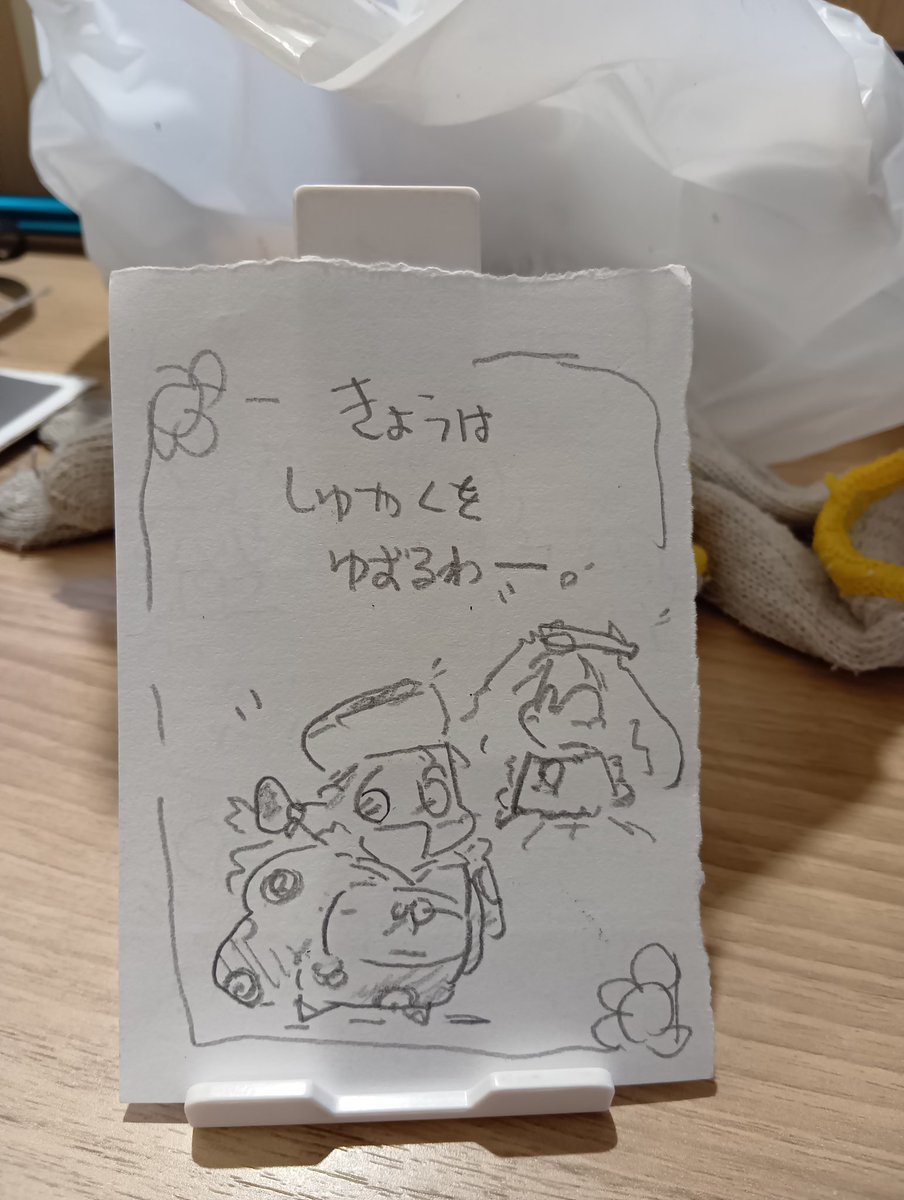 きょうは
しゅやくを
ゆずるわー。